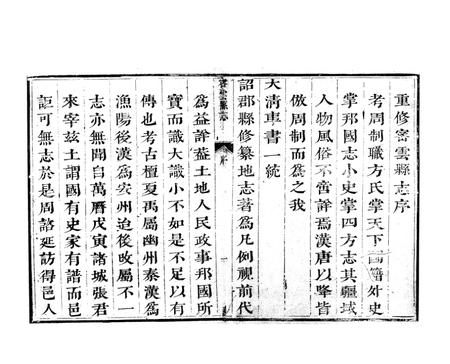 重修密雲縣志序
考周制職方氏掌天下圖籍外史
掌邦國志小史掌四方志其疆域
人物風俗不啻詳焉漢唐以降皆
倣周制而為之我
大清車書一統
詔郡縣修纂地志著為凡例視前代
密雲縣志
序
為益詳葢土地人民政事邦國所
寶而識大識小不如是不足以有
傳也考古檀夏禹屬幽州秦漢為
漁陽後漢為安州迨後改屬不一
志亦無聞自萬曆戊寅諸城張君
來宰茲土謂國有史家有譜而邑
詎可無志於是周諮延訪得邑人